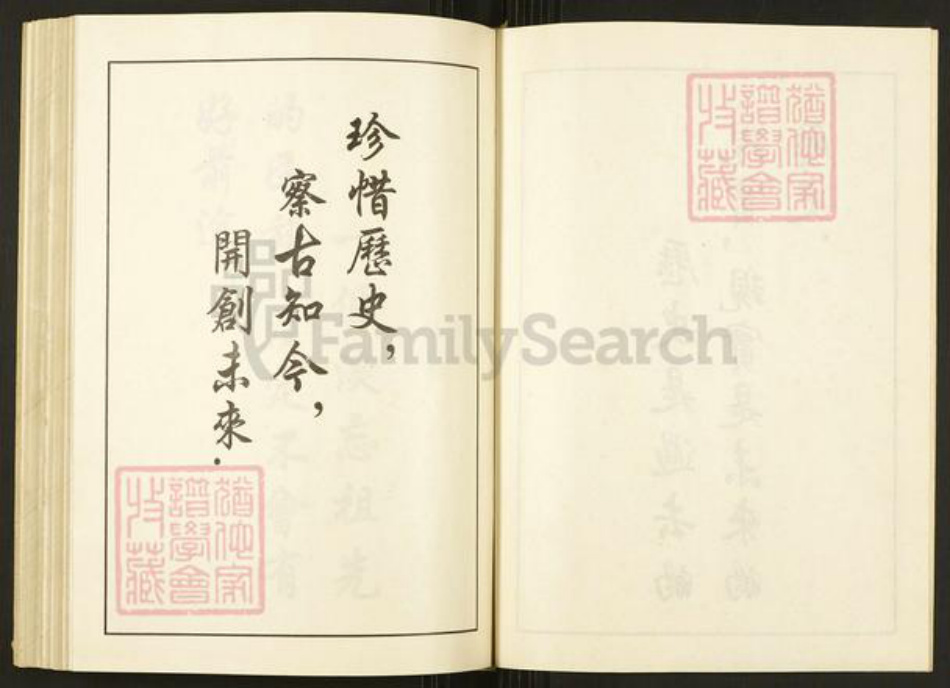 珍惜歷史，
察古知今，
開創未來．
猶他家
譜學會
收藏
猶他家
譜學會
收藏
FamilySearch